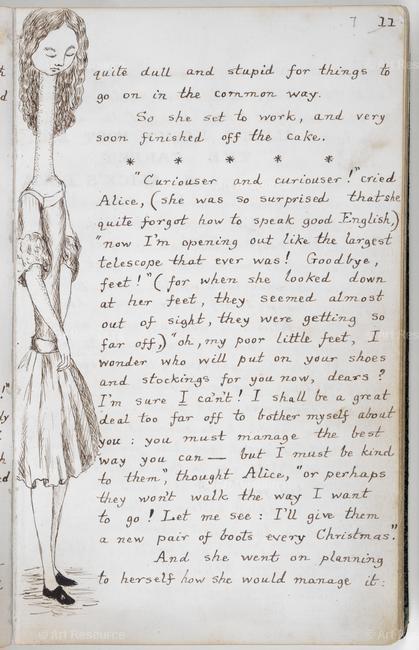 7 11
quite dull and stupid for things to
go on in the common way.
So she set to work, and very
soon finished off the cake.
* * * * *
"Curiouser and curiouser!" cried
Alice, (she was so surprised that she
quite forgot how to speak good English,)
"now I'm opening out like the largest
telescope that ever was! Goodbye,
feet!" (for when she looked down
at her feet, they seemed almost
out of sight, they were getting so
far off,) "oh, my poor little feet, I
wonder who will put on your shoes
and stockings for you now, dears?
I'm sure I can't! I shall be a great
deal too far off to bother myself about
you: you must manage the best
way you can — but I must be kind
to them", thought Alice, "or perhaps
they won't walk the way I want
to go! Let me see: I'll give them
a new pair of boots every Christmas."
And she went on planning
to herself how she would manage it:
© Art Resource
© Art Resource